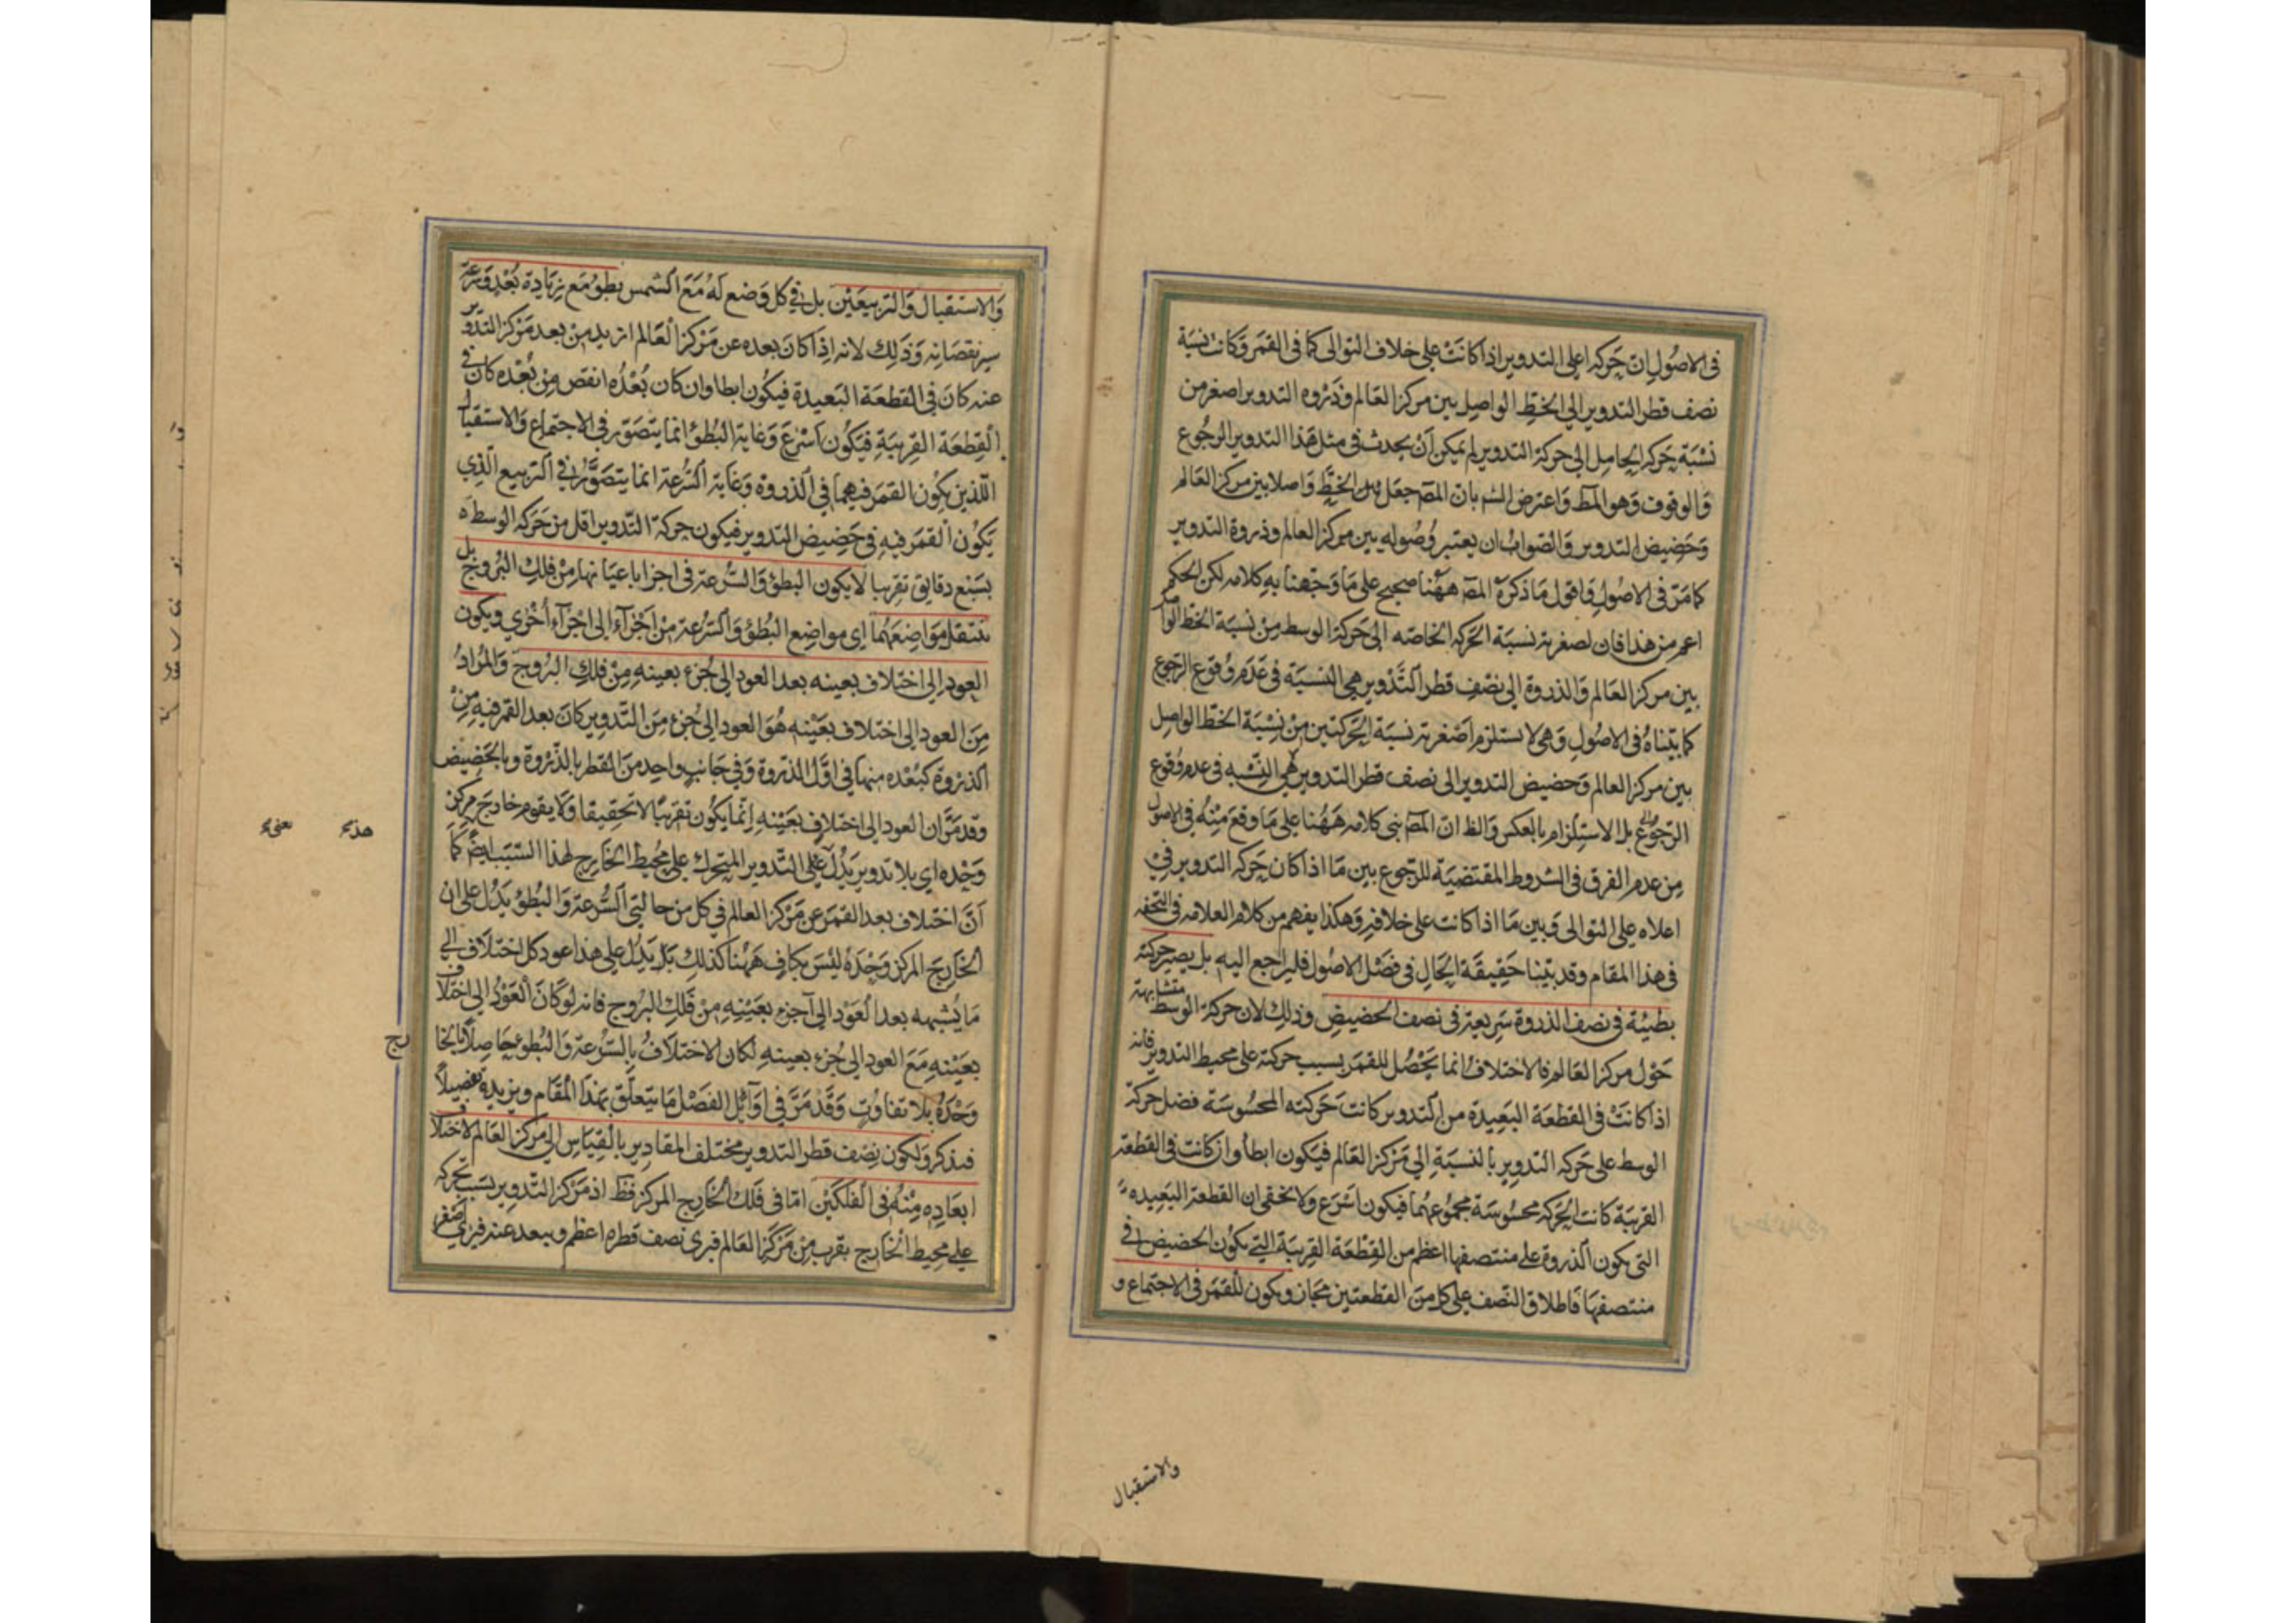 فى الاصُول انّ حَركه اعلى التدوير اذا كانَتْ على خلاف التوالى كما فى القمَر وَكانت نسبَة
نصف قطر التدوير الى الخطّ الواصِل بين مركز العَالم وذروه التدوير اصغر من
نسْبَة حَركة الحامِل الى حركة التدوير لم يمكن اَنْ يحدث فى مثل هذا التدوير الرجُوع
وَالوقوف وَهو المط وَاعترض الش بان المصَ جعَل ذلك الخطّ وَاصلا بين مركز العَالم
وَحَضِيض التدوير وَالصّوابُ ان يعتبر وُصُوله بين مركز العالم وذروة التدوير
كما مَرّ فى الاصُول وَاقول مَا ذكرَهُ المصَ هٰهُنا صحيح على مَا وَجّهنا به كلامه لكن الحكم
اعم من هذا فان لصغرية نسبَة الحَركة الخاصّه الى حَركة الوسط مِنْ نسبَة الخط الواصل
بين مركز العَالم وَالذروة الى نصْف قطر التَّدْوير هى النسبَة فى عَدَم وُقوع الرّجوع
كما بيّناهُ فى الاصُول وَهى لا تستلزم اَصْغرية نسبَة الحَركتين مِنْ نِسْبَة الخطّ الواصِل
بين مركز العالم وَحضيض التدوير الى نصف قطر التدوير هى النّسْبه فى عدم وُقوع
الرّجُوع بل الاستِلزام بالعكس وَالظ انّ المصَ بنى كلامه هَهُنا على مَا وقعَ مِنْهُ فى الاصُول
مِن عَدم الفرق فى الشروط المقتضيَة للرّجوع بين مَا اذا كان حَركه التدوير فىْ
اعلاه على التوالى وَبين مَا اذا كانت على خلافه وَهكذا يفهم من كلام العلامه فى التحفه
فى هذا المقام وقد بيّنا حَقِيقَة الحَال فى فصْل الاصُول فليراجع اليه بل يصير حركته
بطيئة فى نصف الذروة سَريعة فى نصف الحضيضِ وذلك لان حركة الوسط متشابهة
حَوْل مركز العَالم فالاختلافُ انما يَحْصُل للقمَر بسبب حركته على محيط التدوير فانه
اذا كانَتْ فى القطعَة البَعِيدة من التدوير كانت حَركته المحسُوسَة فضل حركة
الوسط على حَركه التدوير بالنسبَةِ الى مَرْكز العَالم فيَكون ابطأ وان كانت فى القطعة
القريبَة كانت الحَركه محسُوسَة مجمُوعهُما فيكون اسْرَع ولا يخفى ان القطعة البَعِيده
التى يكون الذروة على منتصفها اعظم من القِطْعَة القريبَة التى يكوُن الحضيض فى
منتصفهَا فَاطلاق النّصف على كل مِن القطعتين مجَاز ويكون للقمَر فى الاجتماع و
والاستقبال
وَالاستقبال وَالتربيعَيْن بل فى كل وَضع لهُ مَعَ الشمس بطؤ مَع زيَادة بُعْد وَسرعَة
سير نقصَانه وَذَلك لانه اذَا كانَ بعده عن مَرْكز العَالم ازيد من بعد مَركز التدوير
عنه كانَ فى القطعَة البَعيدة فيكُون ابطا وان كان بُعْدُه انقص مِن بُعْده كان فى
القِطعَة القرِيبَةِ فيَكُون اَسْرَعَ وَغاية البُطؤ انما يتصَوّر فى الاجتماع وَالاستقبال
اللّذين يكون القمَر فيهما فى الذروة وَغاية السُّرعَة انما يتصَوَّر فى التربيع الّذِى
يكوُن القمَر فيه فى حَضِيض التدوير فيكون حركة التّدوير اقل من حَركة الوسط ه
بسَبْع دقايق تقريبا لا يكون البطؤ وَالسّرعَة فى اجزا باعيَانها مِنْ فلك البُروُج بل
تنتقل مَوَاضعَهُمَا اى مواضِع البُطؤ وَالسّرعَة مِنْ اَجْزآء الى اجْزَآء اُخْرى ويكون
العود الى اختلاف بعينه بعد العود الى جُزء بعينهِ مِنْ فلك البُروج وَالمُرادُ
مِنَ العود الى اختلاف بعَيْنه هُوَ العود الى جُزء مِنَ التّدوير كانَ بعد القمر فيه مِنْ
الذروة كبُعْده منهَا فى اوّل الذّروة وَفى جَانب واحِد مِنَ القطر بالذّروة وبالحَضِيضِ
وقد مَرَّ ان العود الى اختلاف بعَيْنهِ اِنّما يكوُن تقريبًا لا تحقِيقا وَلا يقوم خارج مركز
وَحْدَه اى بلا تدوير يَدُلّ على التّدوير المتحرك على محُيط الخارج لهذا السّبَب ايضً كَمَا
اَنّ اختلاف بعد القمَر عَن مَرْكز العالم فى كل من حالتى السُّرعَة وَالبُطؤ يَدُل على ان
الخارجَ المركز وَحْدَهُ ليْسَ بكافٍ هَهُنا كذلك بَلْ يَدُل على هذا عود كل اختلاف الى
مَا يُشبهه بعد العَوْد الى جزء بعَيْنِهِ مِنْ فَلك البروج فانه لو كَانَ العَوْدُ الى اختلاف
بعَيْنهِ مَعَ العود الى جُزء بعينهِ لكان الاختلافُ بالسّرُعَة وَالبُطؤ حَاصِلًا بالخا
رج
وَحْدَهُ بلا تفاوُت وَقَدْ مَرَّ فى اَوَآئِل الفَصْل مَا يتعَلّق بهَذا المُقَام ويزيده تفصِيلًا
فنذكر ولكون نِصْف قطر التدوير مختلف المقادِير بالقِيَاس الى مركز العَالم لاختلاف
ابعَادِه مِنْهُ فى الفلكين امّا فى فَلك الخَارج المركز فَظَ اذ مَركز التّدوير بسَبب تحركه
على محِيط الخَارج يقرب مِنْ مَرْكز العَالم فيرى نصف قطره اعظم ويبعد عنه فيرى اَصْغر
هذء يعنىء